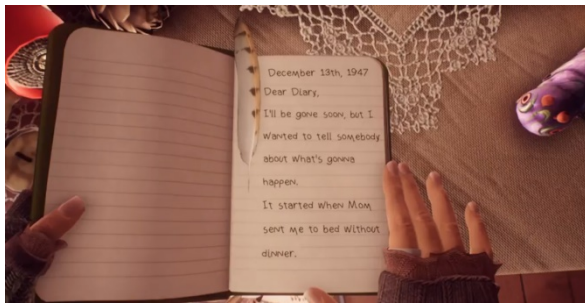 December 13th, 1947
Dear Diary,
I'll be gone soon, but I
wanted to tell somebody
about what's gonna
happen.
It started when Mom
sent me to bed without
dinner.